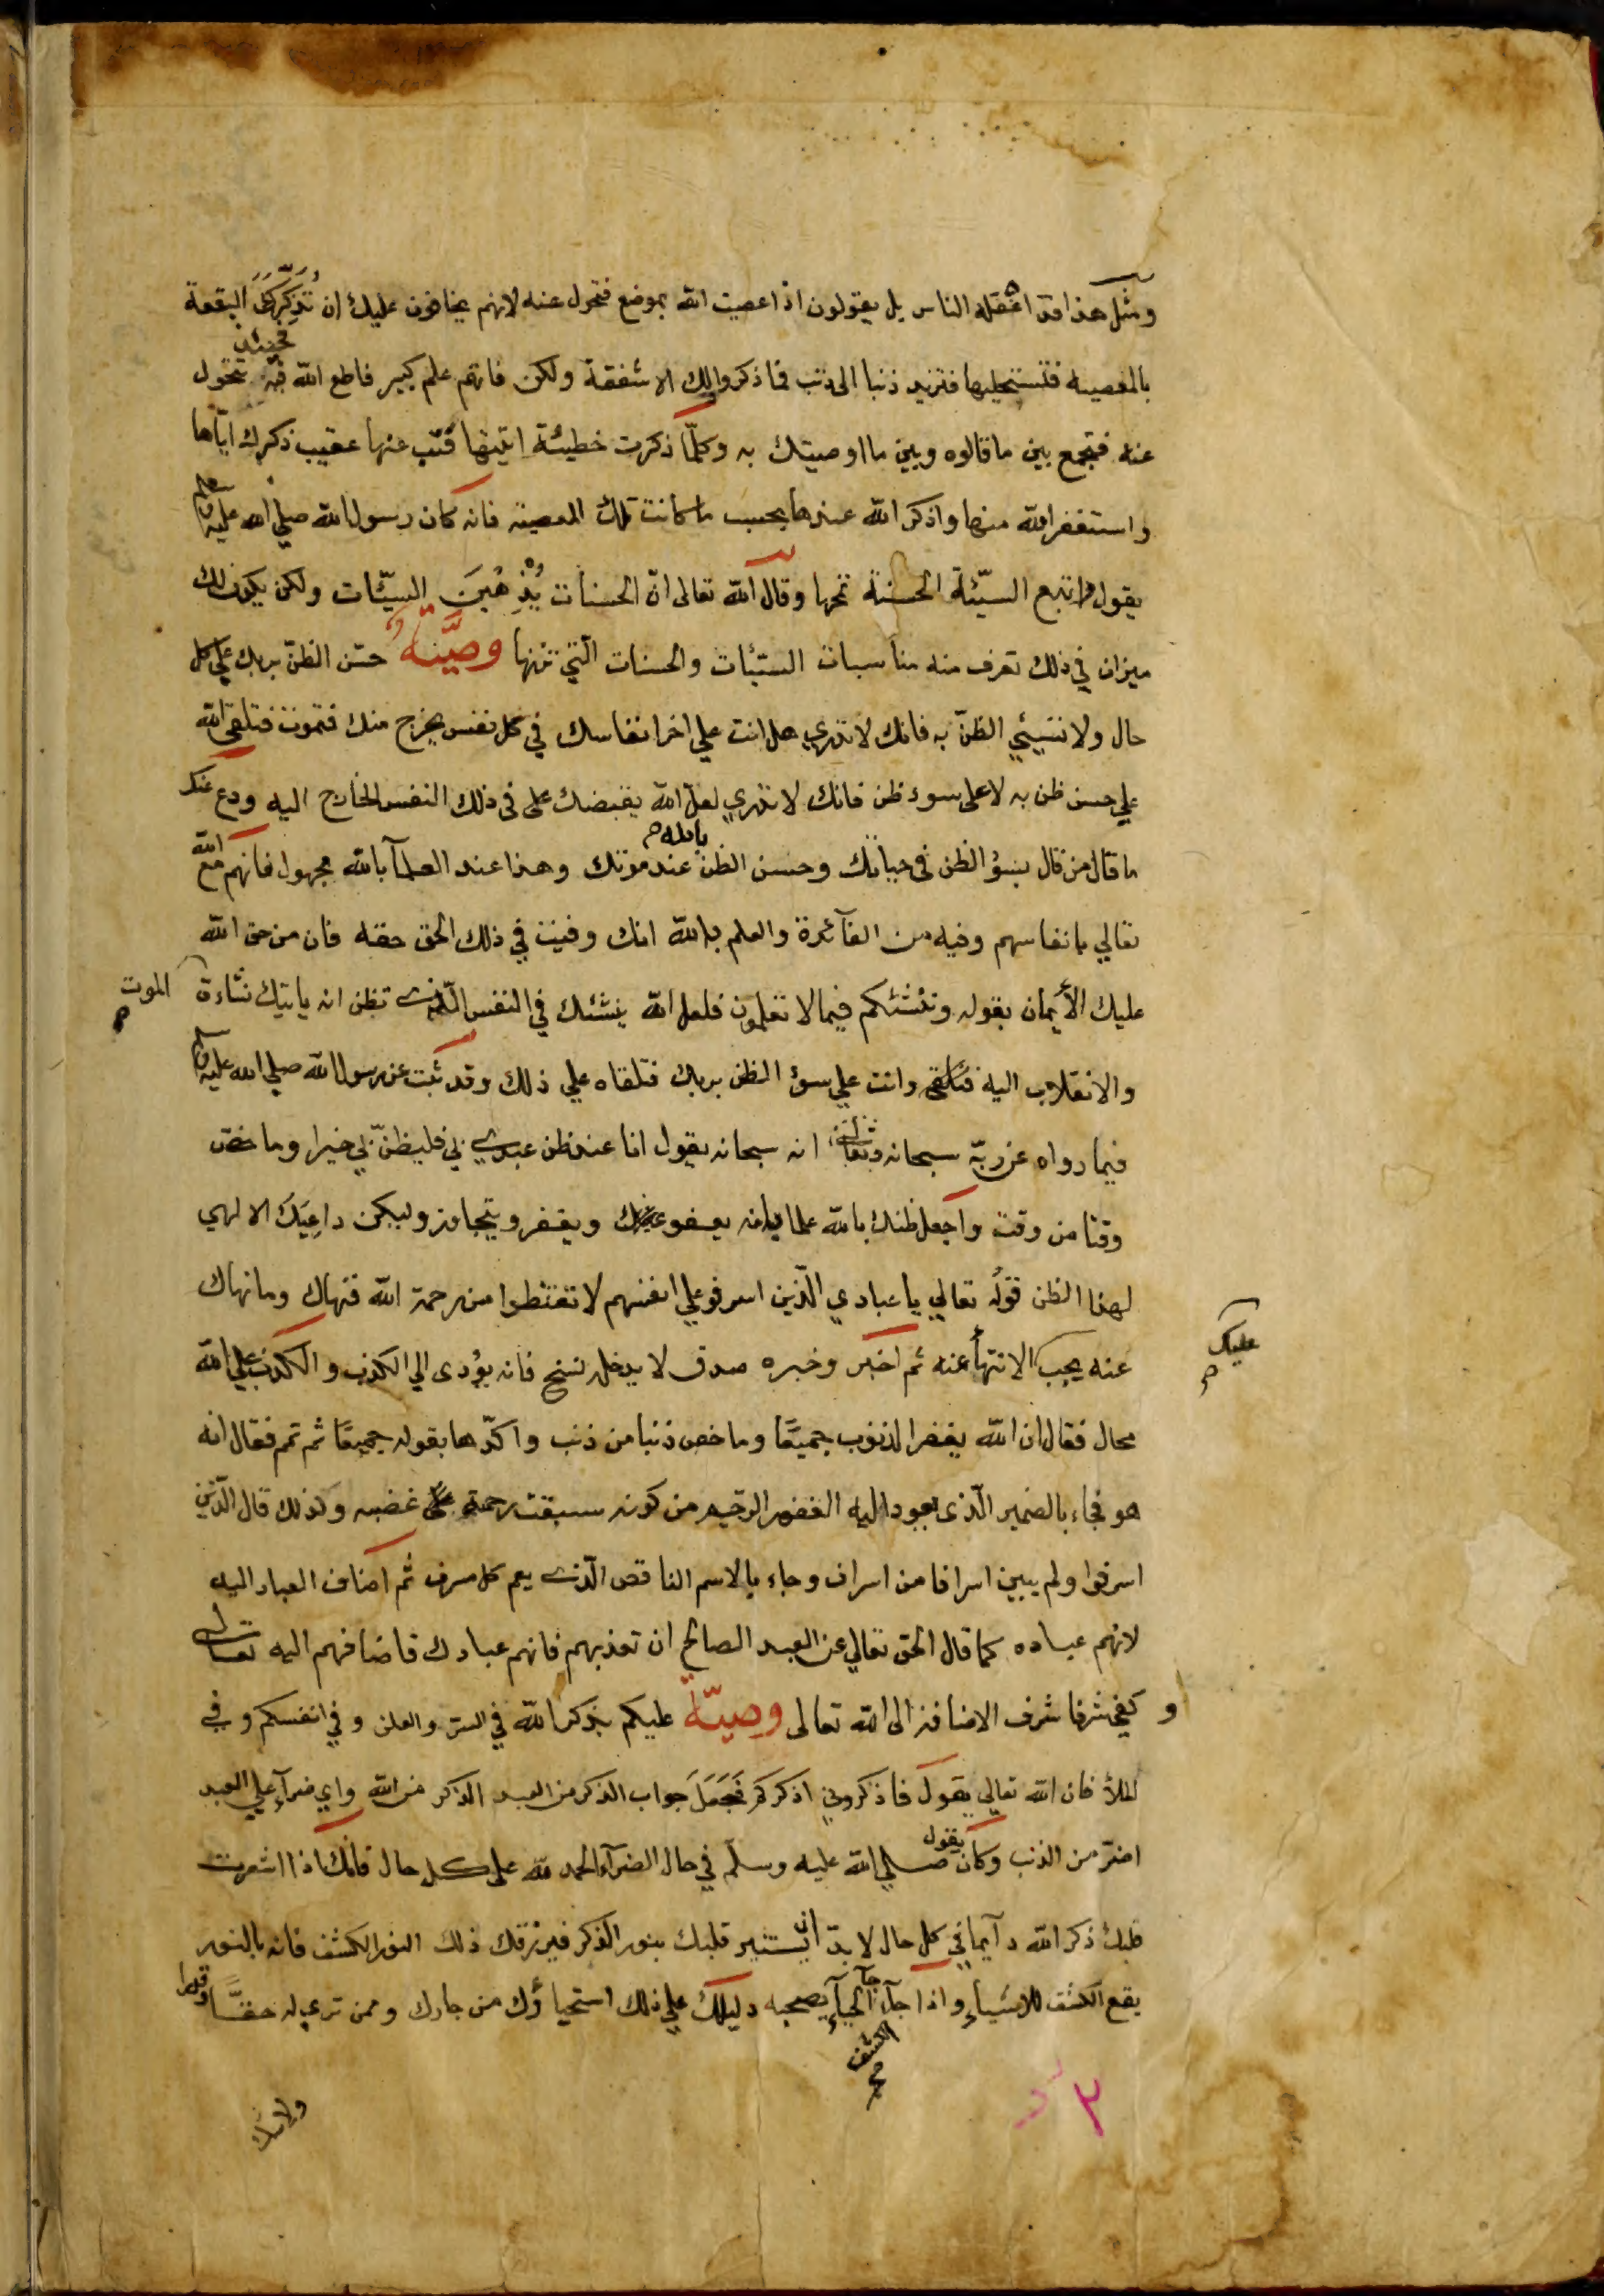 ومثل هذا قد اغفله الناس بل يقولون اذا عصيت الله بموضع فتحول عنه لانهم يخافون عليك ان تُذَكِّركَ البقعة
بالمعصيه فتستحليها فتزيد ذنبا الى ذنب فما ذكروا لك الا شفقة ولكن فاتهم علم كبير فاطع الله فيه حينئذ تتحول
عنه فتجمع بين ما قالوه وبين ما اوصيتك به وكلّما ذكرت خطيئة اتيتها فتب عنها عقيب ذكرك ايّاها
واستغفر الله منها واذكر الله عندها بحسب ما كانت تلك المعصية فانه كان رسول الله صلي الله عليه وسلم
يقول اتبع السيّئة الحسنة تمحها وقال الله تعالى انّ الحسنات يُذْهِبنَ السيّئات ولكن يكون لك
ميزان في ذلك تعرف منه مناسبات السيّئات والحسنات الّتي تزنها وصيَّة حسّن الظنّ بربك علي كل
حال ولا تسيئي الظنّ به فانك لا تدري هل انت علي اخر انفاسك في كل نفس يخرج منك فتموت فتلقى الله
علي حسن ظن به لا على سوء ظن فانك لا تدري لعلّ الله يقبضك على فى ذلك النفس الخارج اليه ودع عنك
ما قال من قال بسؤ الظن فى حياتك وحسن الظن بالله عند موتك وهذا عند العلمآ بالله مجهول فانهم مع الله
تعالي بانفاسهم وفيه من الفآئدة والعلم بالله انك وفيت في ذلك الحق حقه فان من حق الله
عليك الأيمان بقوله وننشئكم فيما لا تعلمون فلعل الله ينشئك في النفس الّذي تظن انه ياتيك نشاءة الموت
والانقلاب اليه فتلقى وانت علي سوء الظن بربك فتلقاه علي ذلك وقد ثبت عن رسول الله صلي الله عليه وسلم
فيما رواه عن ربّه سبحانه وتعالى انه سبحانه يقول انا عند ظن عبدي بي فليظنّ بي خيرا وما خص
وقتا من وقت واجعل ظنك بالله علما بانه يعفو عنك ويغفر ويتجاوز وليكن داعيَك الالهي
لهذا الظن قوله تعالي يا عبادي الّذين اسرفو علي انفسهم لا تقنطوا من رحمة الله فنهاك وما نهاك
عنه يجب عليك الانتهأ عنه ثم اخبر وخبره صدق لا يدخله نسخ فانه يؤدى الي الكذب والكذب علي الله
محال فقال ان الله يغفر الذنوب جميعًا وما خص ذنبا من ذنب واكّدها بقوله جميعًا ثم تمم فقال انه
هو فجاء بالضمير الّذى يعود اليه الغفور الرحيم من كونه سبقت رحمته على غضبه وكذلك قال الّذين
اسرفوا ولم يبين اسرافا من اسراف وجاء بالاسم الناقص الّذي يعم كل مسرف ثم اضاف العباد اليه
لانهم عباده كما قال الحق تعالي عن العبد الصالح ان تعذبهم فانهم عبادك فاضافهم اليه تعالى
وكفي شرفا شرف الاضافة الى الله تعالى وصيّة عليكم بذكر الله في السرّ والعلن وفي انفسكم وفي
الملأ فان الله تعالي يقول فاذكروني اذكركم فجَعَلَ جواب الذكر من العبد الذكر من الله واي ضرآء علي العبد
اضرّ من الذنب وكان يقول صلي الله عليه وسلّم في حال الضرآء الحمد لله على كل حال فانك اذا اشعرت
قلبك ذكر الله دآيما في كل حال لا بدّ ان يستنير قلبك بنور الذكر فيرزقك ذلك النور الكشف فانه بالنور
يقع الكشف للاشيآء واذا جآء الكشف جآ الحيآء يصحبه دليلك علي ذلك استحياؤك من جارك وممن ترى له حقًّا وقدرا
ولا شك
٣